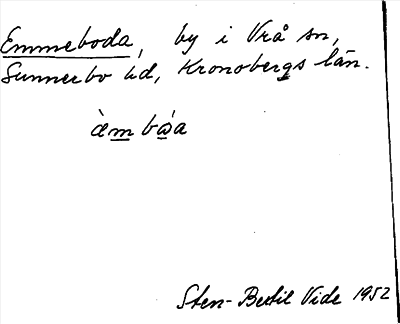 Emmeboda, by i Vrå sn,
Sunnerbo hd, Kronobergs län.
àm bω̇a
Sten-Bertil Vide 1952